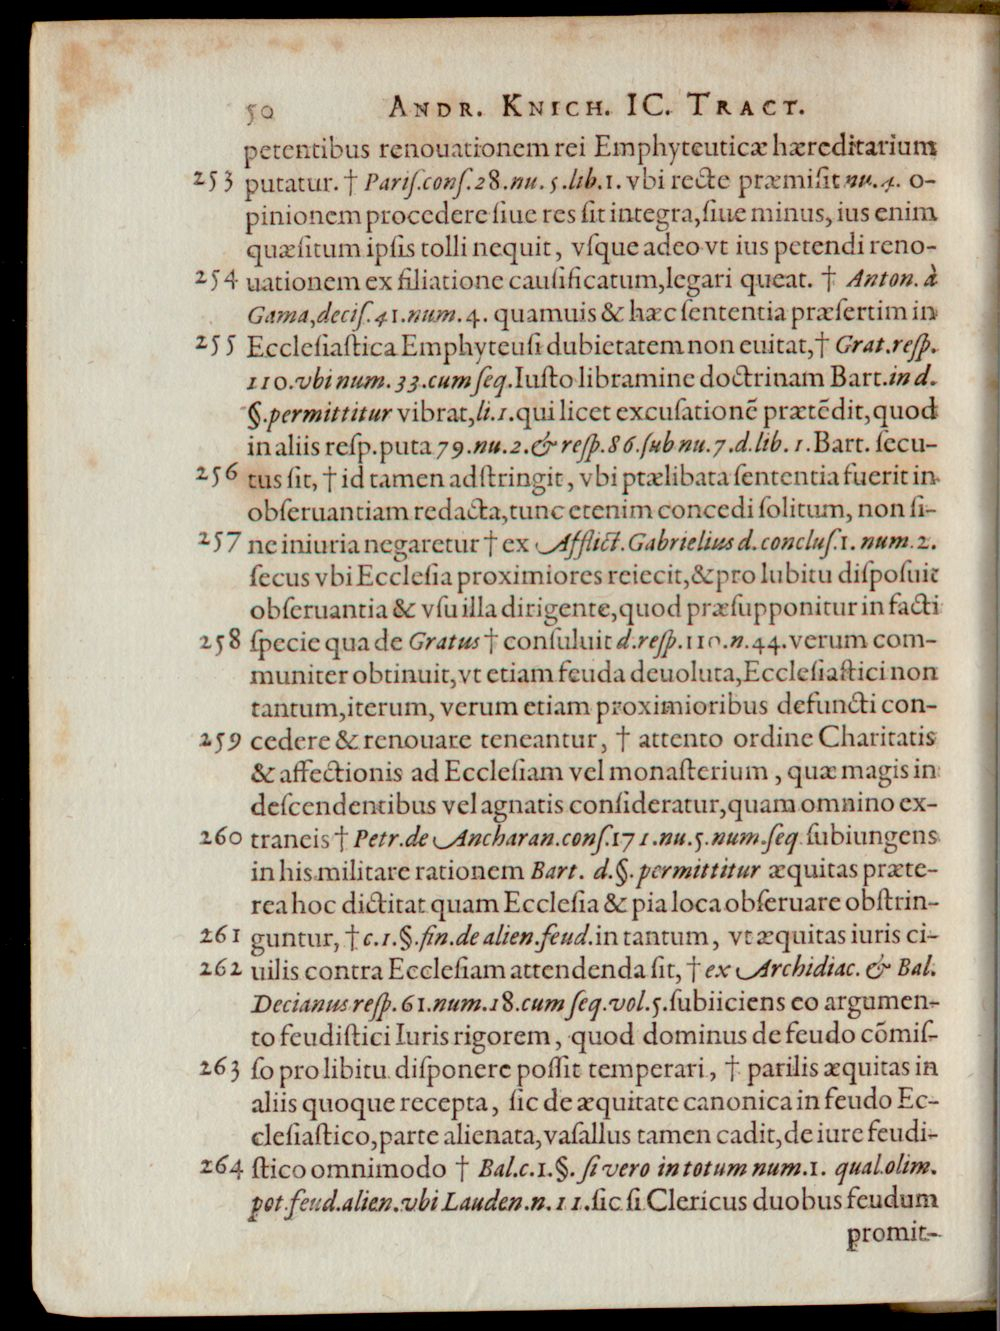 50 ANDR. KNICH. IC. TRACT.
petentibus renouationem rei Emphyteuticæ hæreditarium
253 putatur. † Pariſ.conſ.28.nu.5.lib.1. vbi recte præmiſit nu.4. o-
pinionem procedere ſiue res ſit integra,ſiue minus, ius enim
quæſitum ipſis tolli nequit, vſque adeo vt ius petendi reno-
254 uationem ex filiatione cauſificatum,legari queat. † Anton. à
Gama,deciſ.41.num.4. quamuis & hæc ſententia præſertim in
255 Eccleſiaſtica Emphyteuſi dubietatem non euitat,† Grat.reſp.
110.vbi num.33.cum ſeq.Iuſto libramine doctrinam Bart.in d.
§.permittitur vibrat,li.1.qui licet excuſationẽ prætẽdit,quod
in aliis reſp.puta 79.nu.2.& reſp.86.ſub nu.7.d.lib.1.Bart. ſecu-
256 tus ſit, † id tamen adſtringit, vbi ptælibata ſententia fuerit in
obſeruantiam redacta,tunc etenim concedi ſolitum, non ſi-
257 ne iniuria negaretur † ex Afflict.Gabrielius d.concluſ.1. num.2.
ſecus vbi Eccleſia proximiores reiecit,& pro lubitu diſpoſuit
obſeruantia & vſu illa dirigente,quod præſupponitur in facti
258 ſpecie qua de Gratus † conſuluit d.reſp.110.n.44.verum com-
muniter obtinuit,vt etiam feuda deuoluta,Eccleſiaſtici non
tantum,iterum, verum etiam proximioribus defuncti con-
259 cedere & renouare teneantur, † attento ordine Charitatis
& affectionis ad Eccleſiam vel monaſterium, quæ magis in
deſcendentibus vel agnatis conſideratur,quam omnino ex-
260 traneis † Petr.de Ancharan.conſ.171.nu.5.num.ſeq.ſubiungens
in his militare rationem Bart. d.§.permittitur æquitas præte-
rea hoc dictitat quam Eccleſia & pia loca obſeruare obſtrin-
261 guntur, † c.1.§.fin.de alien.feud.in tantum, vt æquitas iuris ci-
262 uilis contra Eccleſiam attendenda ſit, † ex Archidiac. & Bal.
Decianus reſp.61.num.18.cum ſeq.vol.5.ſubiiciens eo argumen-
to feudiſtici Iuris rigorem, quod dominus de feudo cõmiſ-
263 ſo pro libitu diſponere poſſit temperari, † parilis æquitas in
aliis quoque recepta, ſic de æquitate canonica in feudo Ec-
cleſiaſtico,parte alienata,vaſallus tamen cadit,de iure feudi-
264 ſtico omnimodo † Bal.c.1.§. ſi vero in totum num.1. qual.olim.
pot.feud.alien.vbi Lauden.n.11.ſic ſi Clericus duobus feudum
promit-